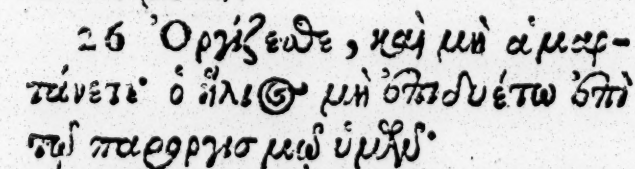 26 Ὀργίζεσθε, καὶ μὴ ἁμαρ-
τάνετε· ὁ ἥλιος μὴ ἐπιδυέτω ἐπὶ
τῷ παροργισμῷ ὑμῶν·